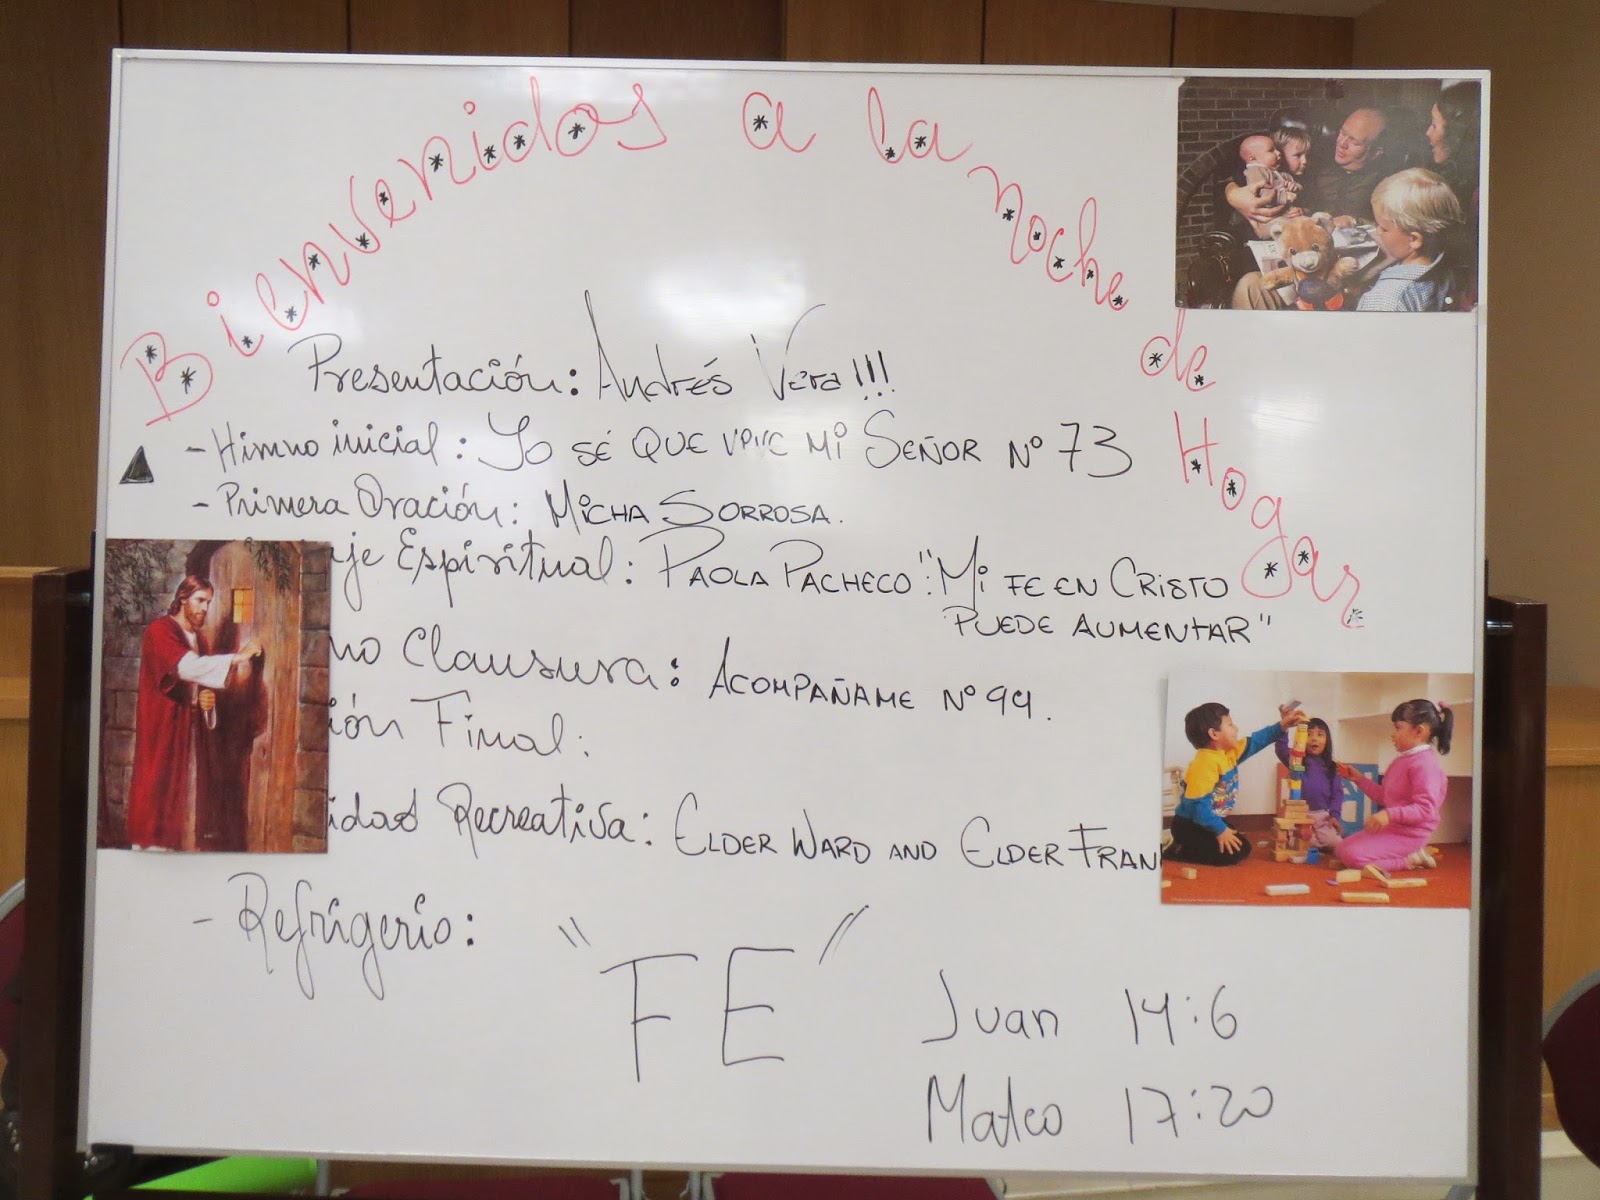 Bienvenidos a la noche de Hogar
Presentación: Andrés Vera!!!
- Himno inicial: Yo SÉ QUE VIVE MI SEÑOR Nº 73
- Primera Oración: MICHA SORROSA.
aje Espiritual: PAOLA PACHECO: "MI FE EN CRISTO
PUEDE AUMENTAR"
no Clausura: ACOMPAÑAME Nº 99.
ión Final:
idad Recreativa: ELDER WARD AND ELDER FRAN
- Refrigerio:
"FE"
Juan 14:6
Mateo 17:20